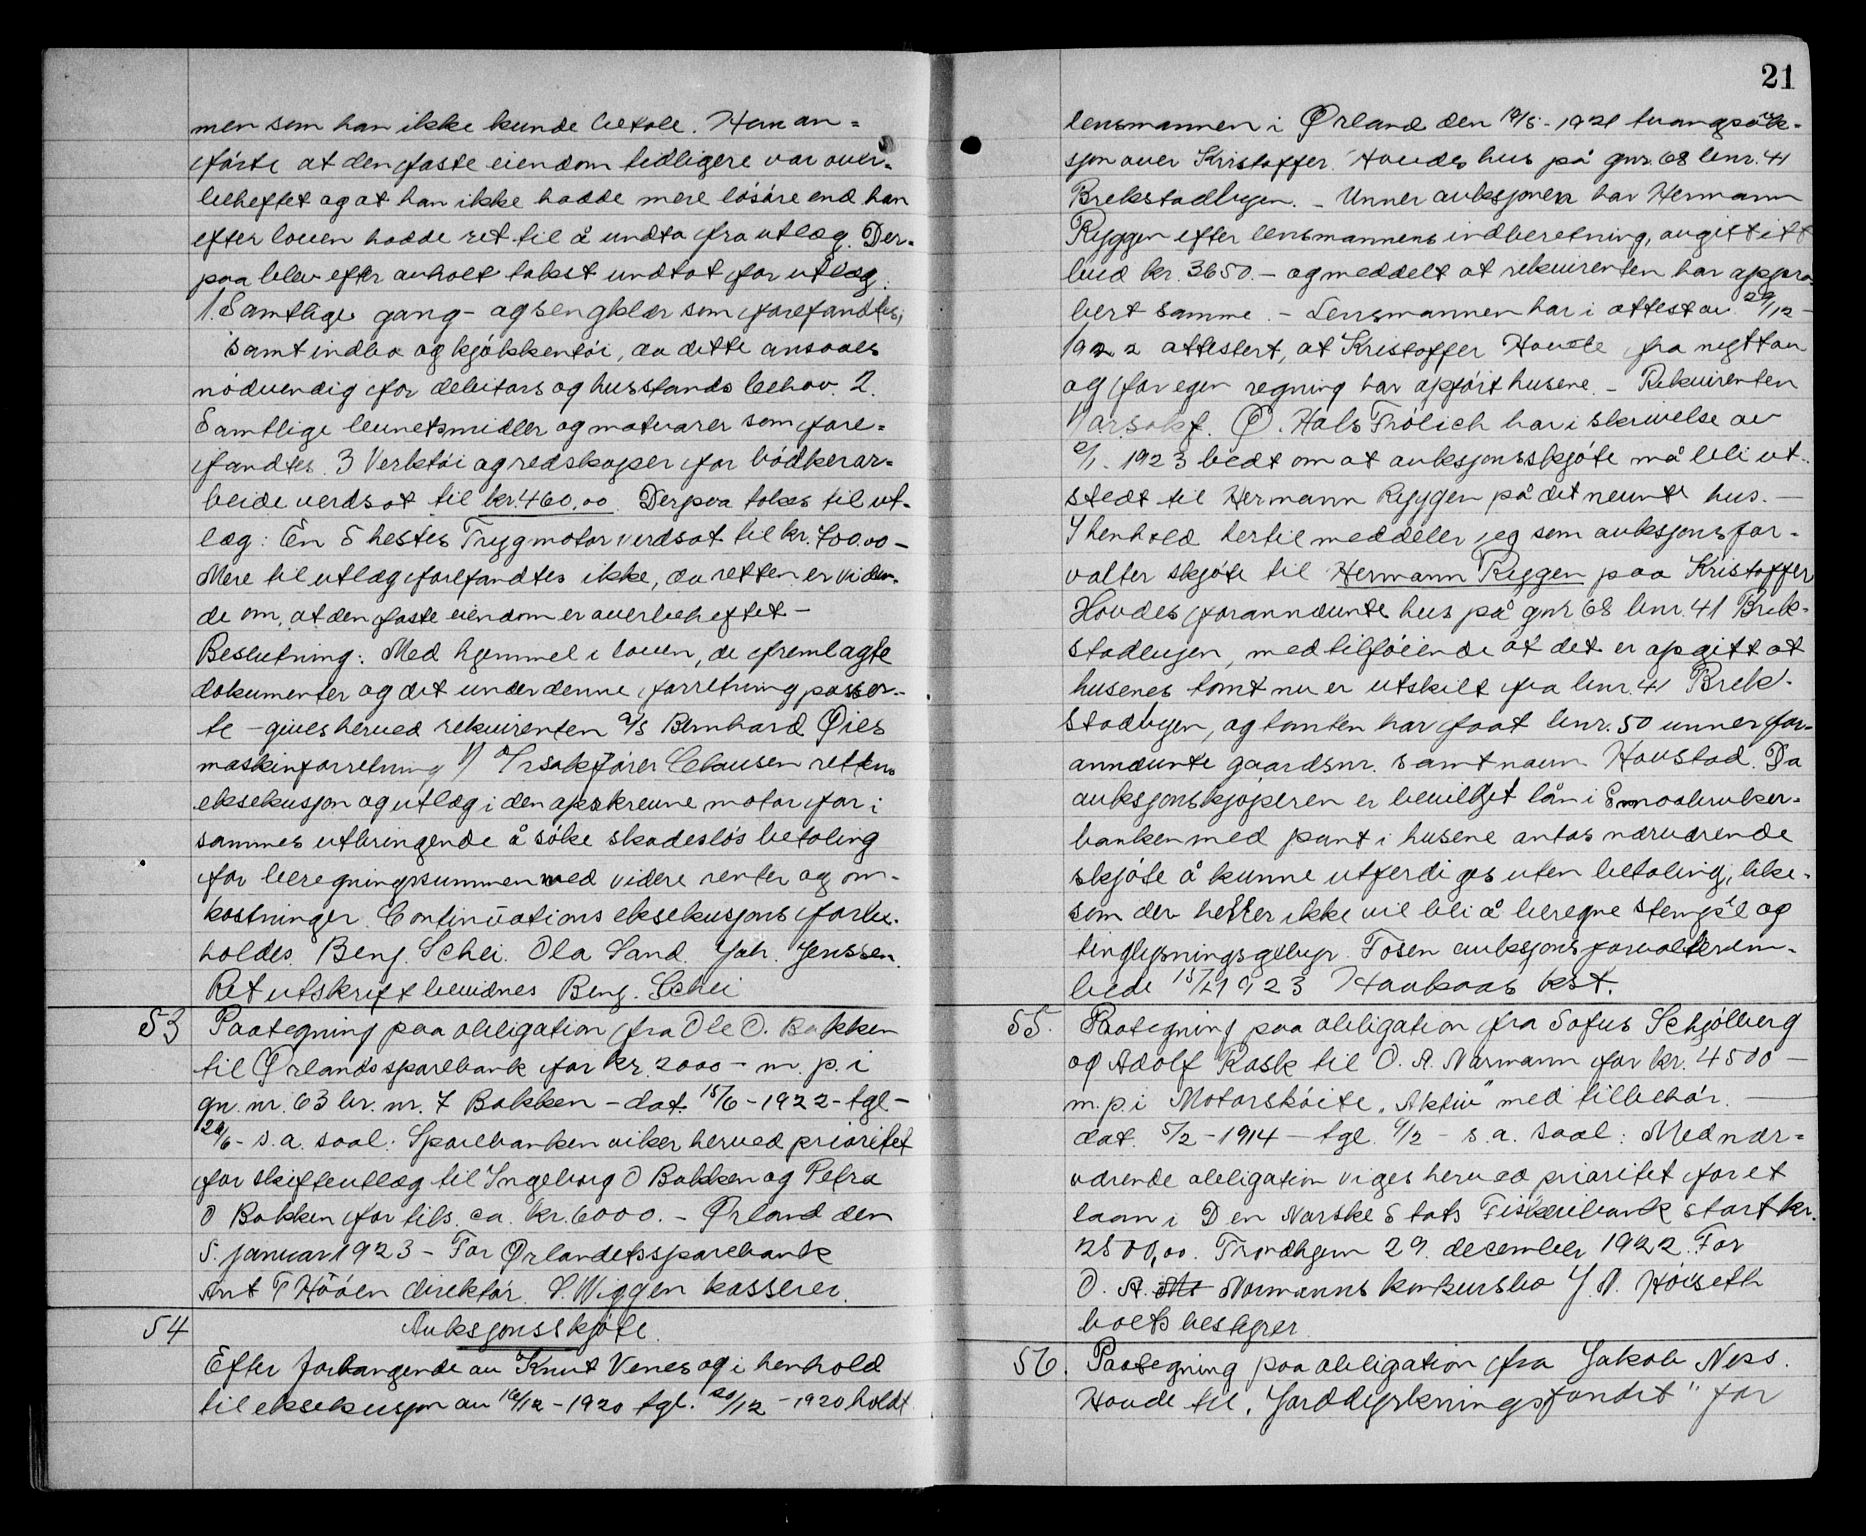 men som han ikke kunde betale. Han an=
förte at den faste eiendom tidligere var over-
beheftet og at han ikke hadde mere lösöre end han
efter loven hadde ret til å undta fra utlæg. Der-
paa blev efter avholt takst undtat for utlæg:
1. Samtlige gang- og sengklær som forefandtes,
samt indbo og kjökkentöi, da dette ansaaes
nödvendig for debitors og husstands behov. 2.
Samtlige levnetsmidler og matvarer som fore=
fandtes. 3 Verktöi og redskaper for bödkerar-
beide verdsat til kr. 460,00. Derpaa tokes til ut-
læg: En 5 hestes Trygmotor verdsat til kr. 700.00 -
Mere til utlæg forefandtes ikke, da retten er viden-
de om, at den faste eiendom er overbeheftet -
Beslutning: Med hjemmel i loven, de fremlagte
dokumenter og det under denne forretning passer-
te - gives herved rekvirenten A/S Bernhard Øies
maskinforretning v/ O/rsakförer Clausen rettens
eksekusjon og utlæg i den opskrevne motor for i
sammes utbringende å söke skadeslös betaling
for beregningssummen med videre renter og om-
kostninger. Continuations eksekusjons forbe-
holdes. Benj. Schei. Ola Sand. Joh. Jenssen.
Ret utskrift bevidnes Benj. Schei
53 Paategning paa obligation fra Ole O. Bakken
til Ørlands sparebank for kr. 2000 - m. p. i
gn. nr. 63 br. nr. 7 Bakken - dat. 15/6 - 1922 - tgl -
20/6 - s. a. saal: Sparebanken viker herved prioritet
for skifteutlæg til Ingeborg O Bakken og Petra
O Bakken for tils. ca. kr. 6000. - Ørland den
5. januar 1923 - For Ørlandets sparebank
Ant T Hööen direktör. S. Wiggen kasserer.
54 Auksjonsskjöte.
Efter forlangende av Knut Venes og i henhold
til eksekusjon av 16/12 - 1920 tgl. 20/12 - 1920 holdt
21
lensmannen i Ørland den 19/5 - 1921 tvangsauk-
sjon over Kristoffer Hovdes hus på gnr. 68 bnr. 41
Brekstadbugen. - Unner auksjonen har Hermann
Ryggen efter lensmannens indberetning, avgitt ett
bud kr. 3650. - og meddelt at rekvirenten har appro-
bert samme. - Lensmannen har i attest av 29/12 -
1922 attestert, at Kristoffer Hovde fra nytt av
og for egen regning har opfört husene. - Rekvirenten
O/r.sakf. O. Hals Frölich har i skrivelse av
9/1. 1923 bedt om at auksjonsskjöte må bli ut-
stedt til Hermann Ryggen på det nevnte hus. -
I henhold hertil meddeler jeg som auksjonsfor-
valter skjöte til Hermann Ryggen paa Kristoffer
Hovdes forannævnte hus på gnr. 68 bnr. 41 Brek-
stadbugen, med tilföiende at det er opgitt at
husenes tomt nu er utskilt fra bnr. 41 Brek-
stadbugen, og tomten har faat bnr. 50 unner for-
annævnte gaardsnr. samt navn Havstad. Da
auksjonskjöperen er bevilget lån i Smaabruker-
banken med pant i husene antas nærværende
skjöte å kunne utferdiges uten betaling, like-
som der heller ikke vil bli å beregne stempel og
tinglysningsgebyr. Fosen auksjonsforvalterem-
bede 15/1 1923 Haukaas kst.
55. Paategning paa obligation fra Sofus Schjölberg
og Adolf Rask til O. A. Normann for kr. 4500 -
m. p. i Motorsköite "Aktiv" med tilbehör. -
dat. 5/2 - 1914 - tgl. 9/2 - s. a. saal: Med nær=
værende obligation viges herved prioritet for et
laan i Den Norske Stats Fiskeribank stort kr.
2500,00. Trondhjem 29. december 1922. For
O. A. Normanns konkursbo J. N. Höiseth
boets bestyrer
56. Paategning paa obligation fra Jakob Ness.
Hovde til "Jorddyrkningsfondet" for